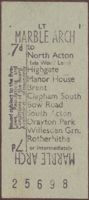 LT
MARBLE ARCH
7d
to
North Acton
Highgate
Manor House
Brent
Clapham South
Bow Road
South Acton
Drayton Park
Willesden Grn.
Rotherhithe
or intermediately
7d
MARBLE ARCH
25698